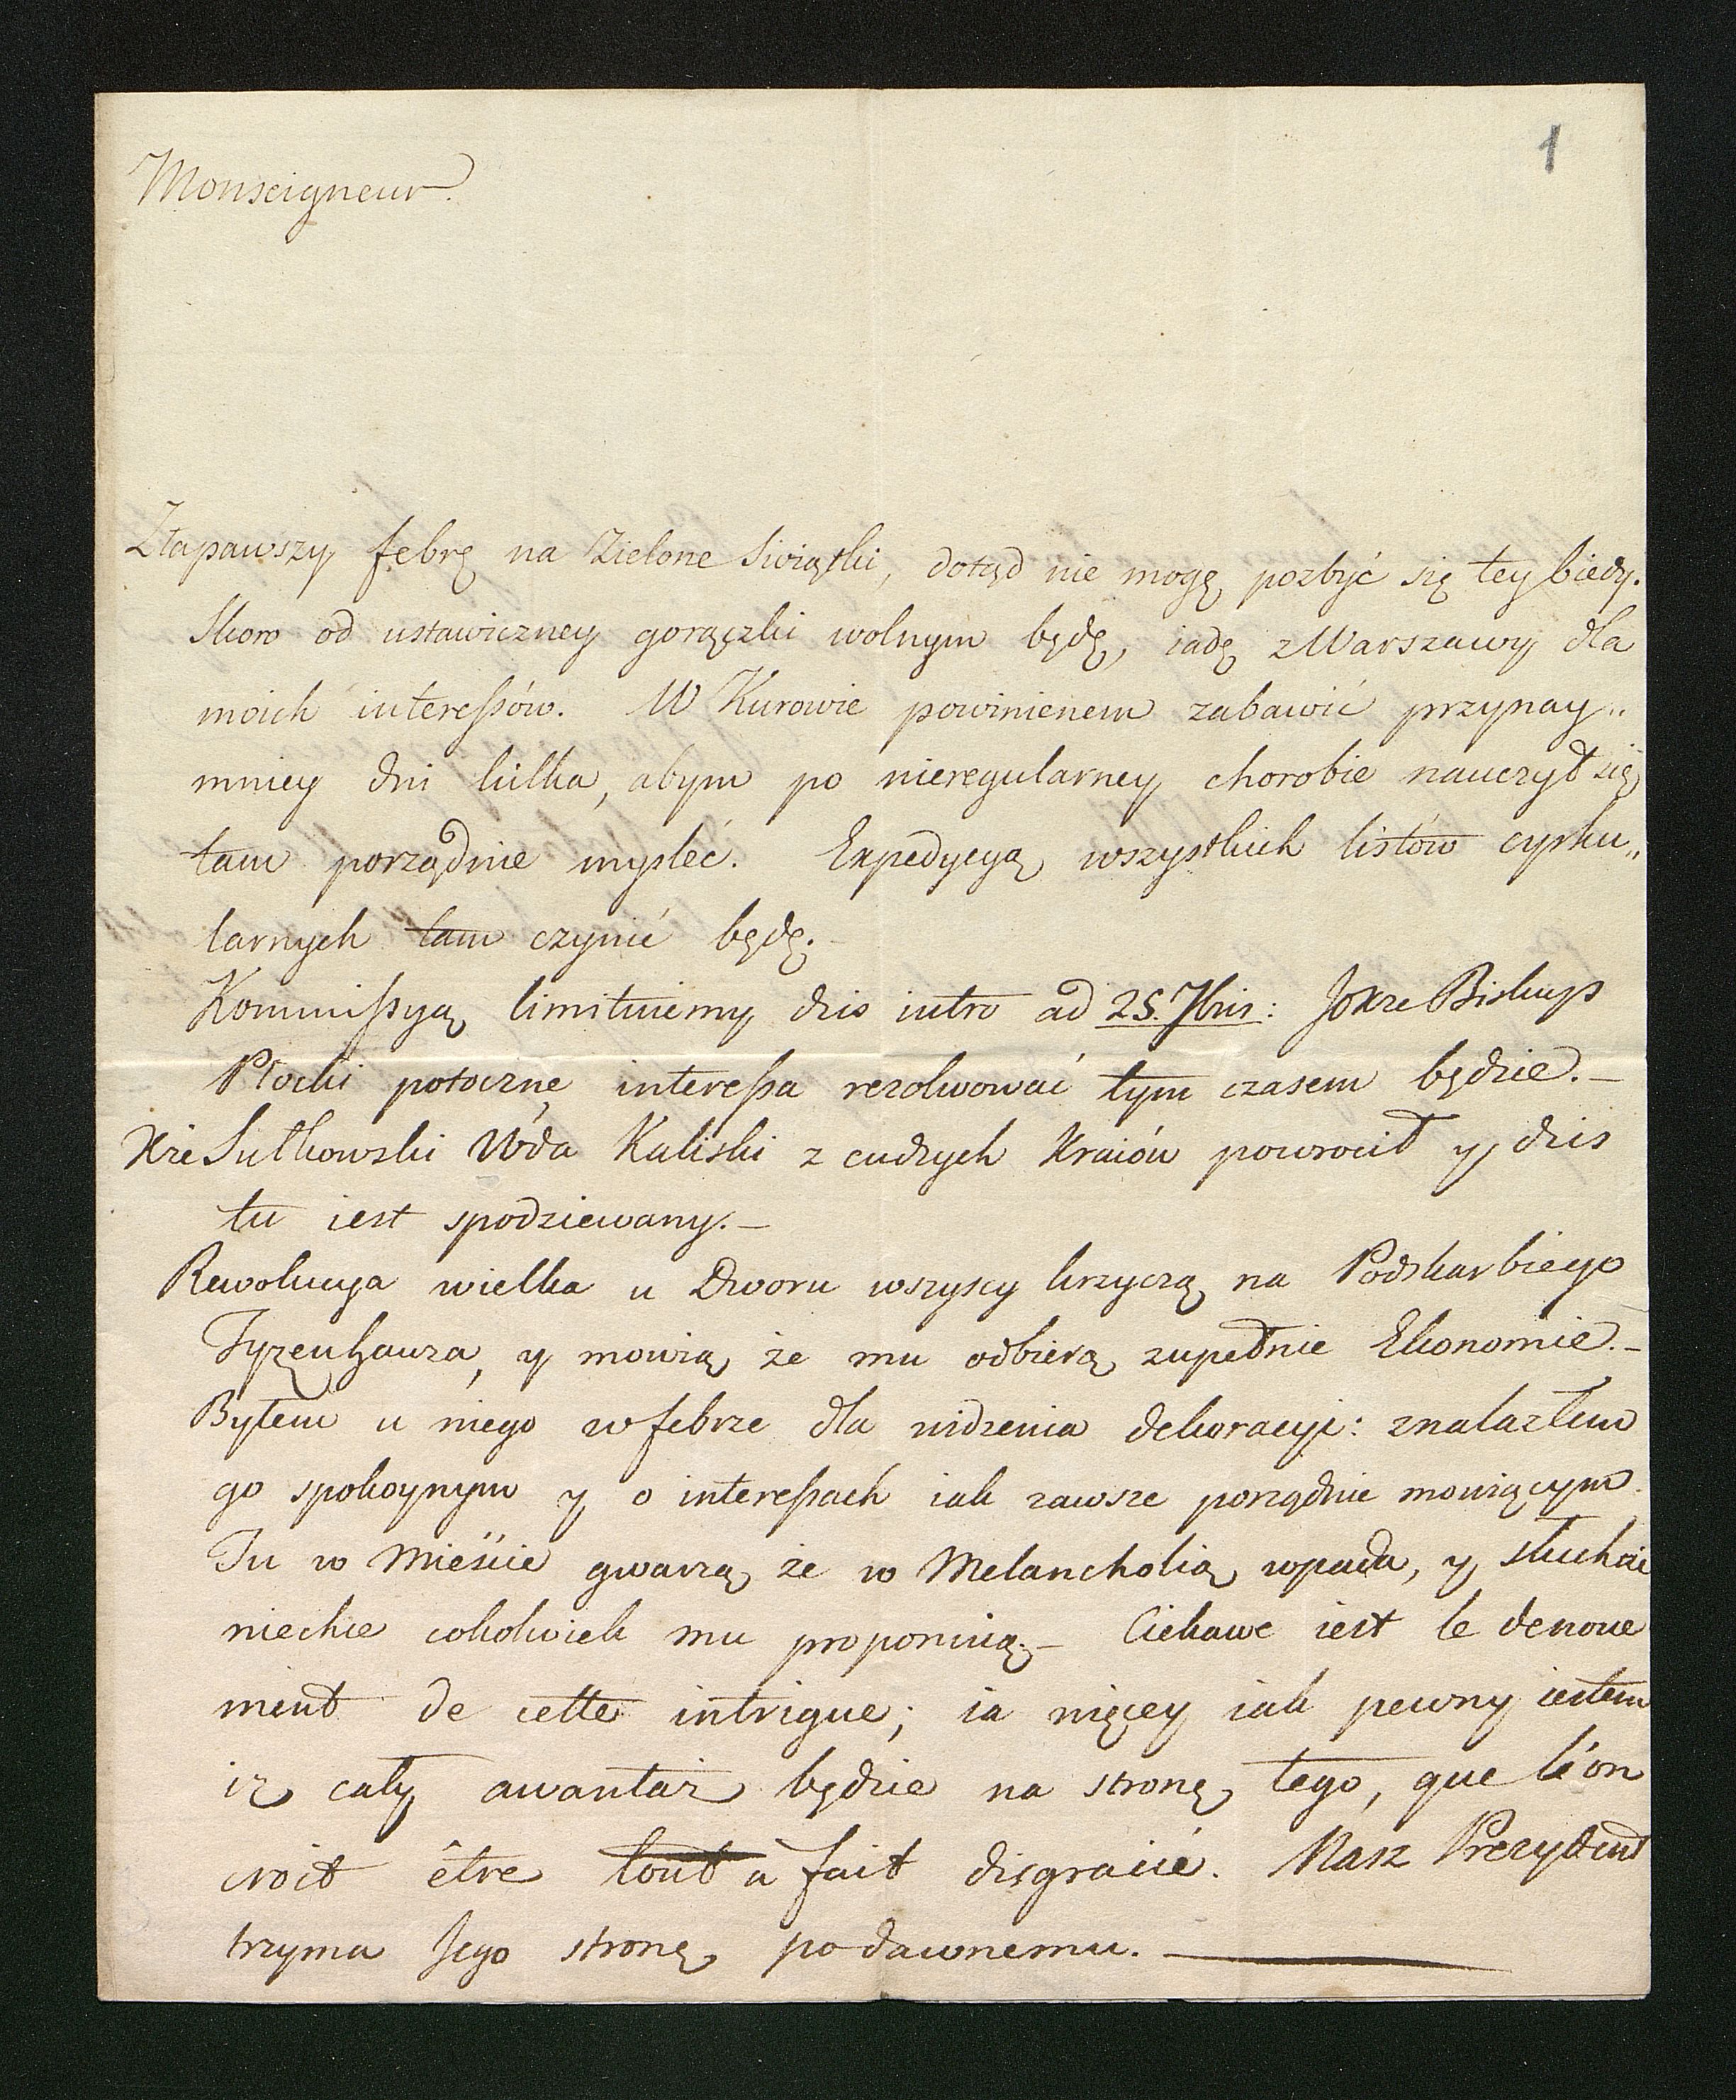 1
Monseigneur.
Złapawszy febrę na Zielone Swiątki, dotąd nie mogę pozbyć się tey biedy.
Skoro od ustawiczney gorączki wolnym będę, iadę z Warszawy dla
moich interessów. W Kurowie powinienem zabawić przynay„
mniey dni kilka, abym po nieregularney chorobie nauczył się
tam porządnie mysleć. Expedycyą wszystkich listów cyrku„
larnych tam czynić będę.
Kommissyą limituiemy dzis iutro ad 25. 7bris: JoXze Biskup
Płocki potoczne interessa rezolwować tym czasem będzie.—
Xże Sułkowski Wda Kaliski z cudzych Kraiów powrocił y dzis
tu iest spodziewany.—
Rewolucya wielka u Dworu wszyscy krzyczą na Podskarbiego
Tyzenhauza, y mowią że mu odbierą zupełnie Ekonomie.—
Byłem u niego w febrze dla widzenia dekoracyi: znalazłem
go spokoynym y o interessach iak zawsze porządnie mowiącym.
Tu w Mieście gwarzą że w Melancholią wpada, y słuchać
niechce cokolwiek mu proponuią.— Ciekawe iest le denoue
ment de cette intrigue; ia więcey iak pewny iestem
iż cały awantaż będzie na stronę tego, que l'on
croit être tout à fait disgracié. Nasz Prezydent
trzyma Jego stronę podawnemu.—